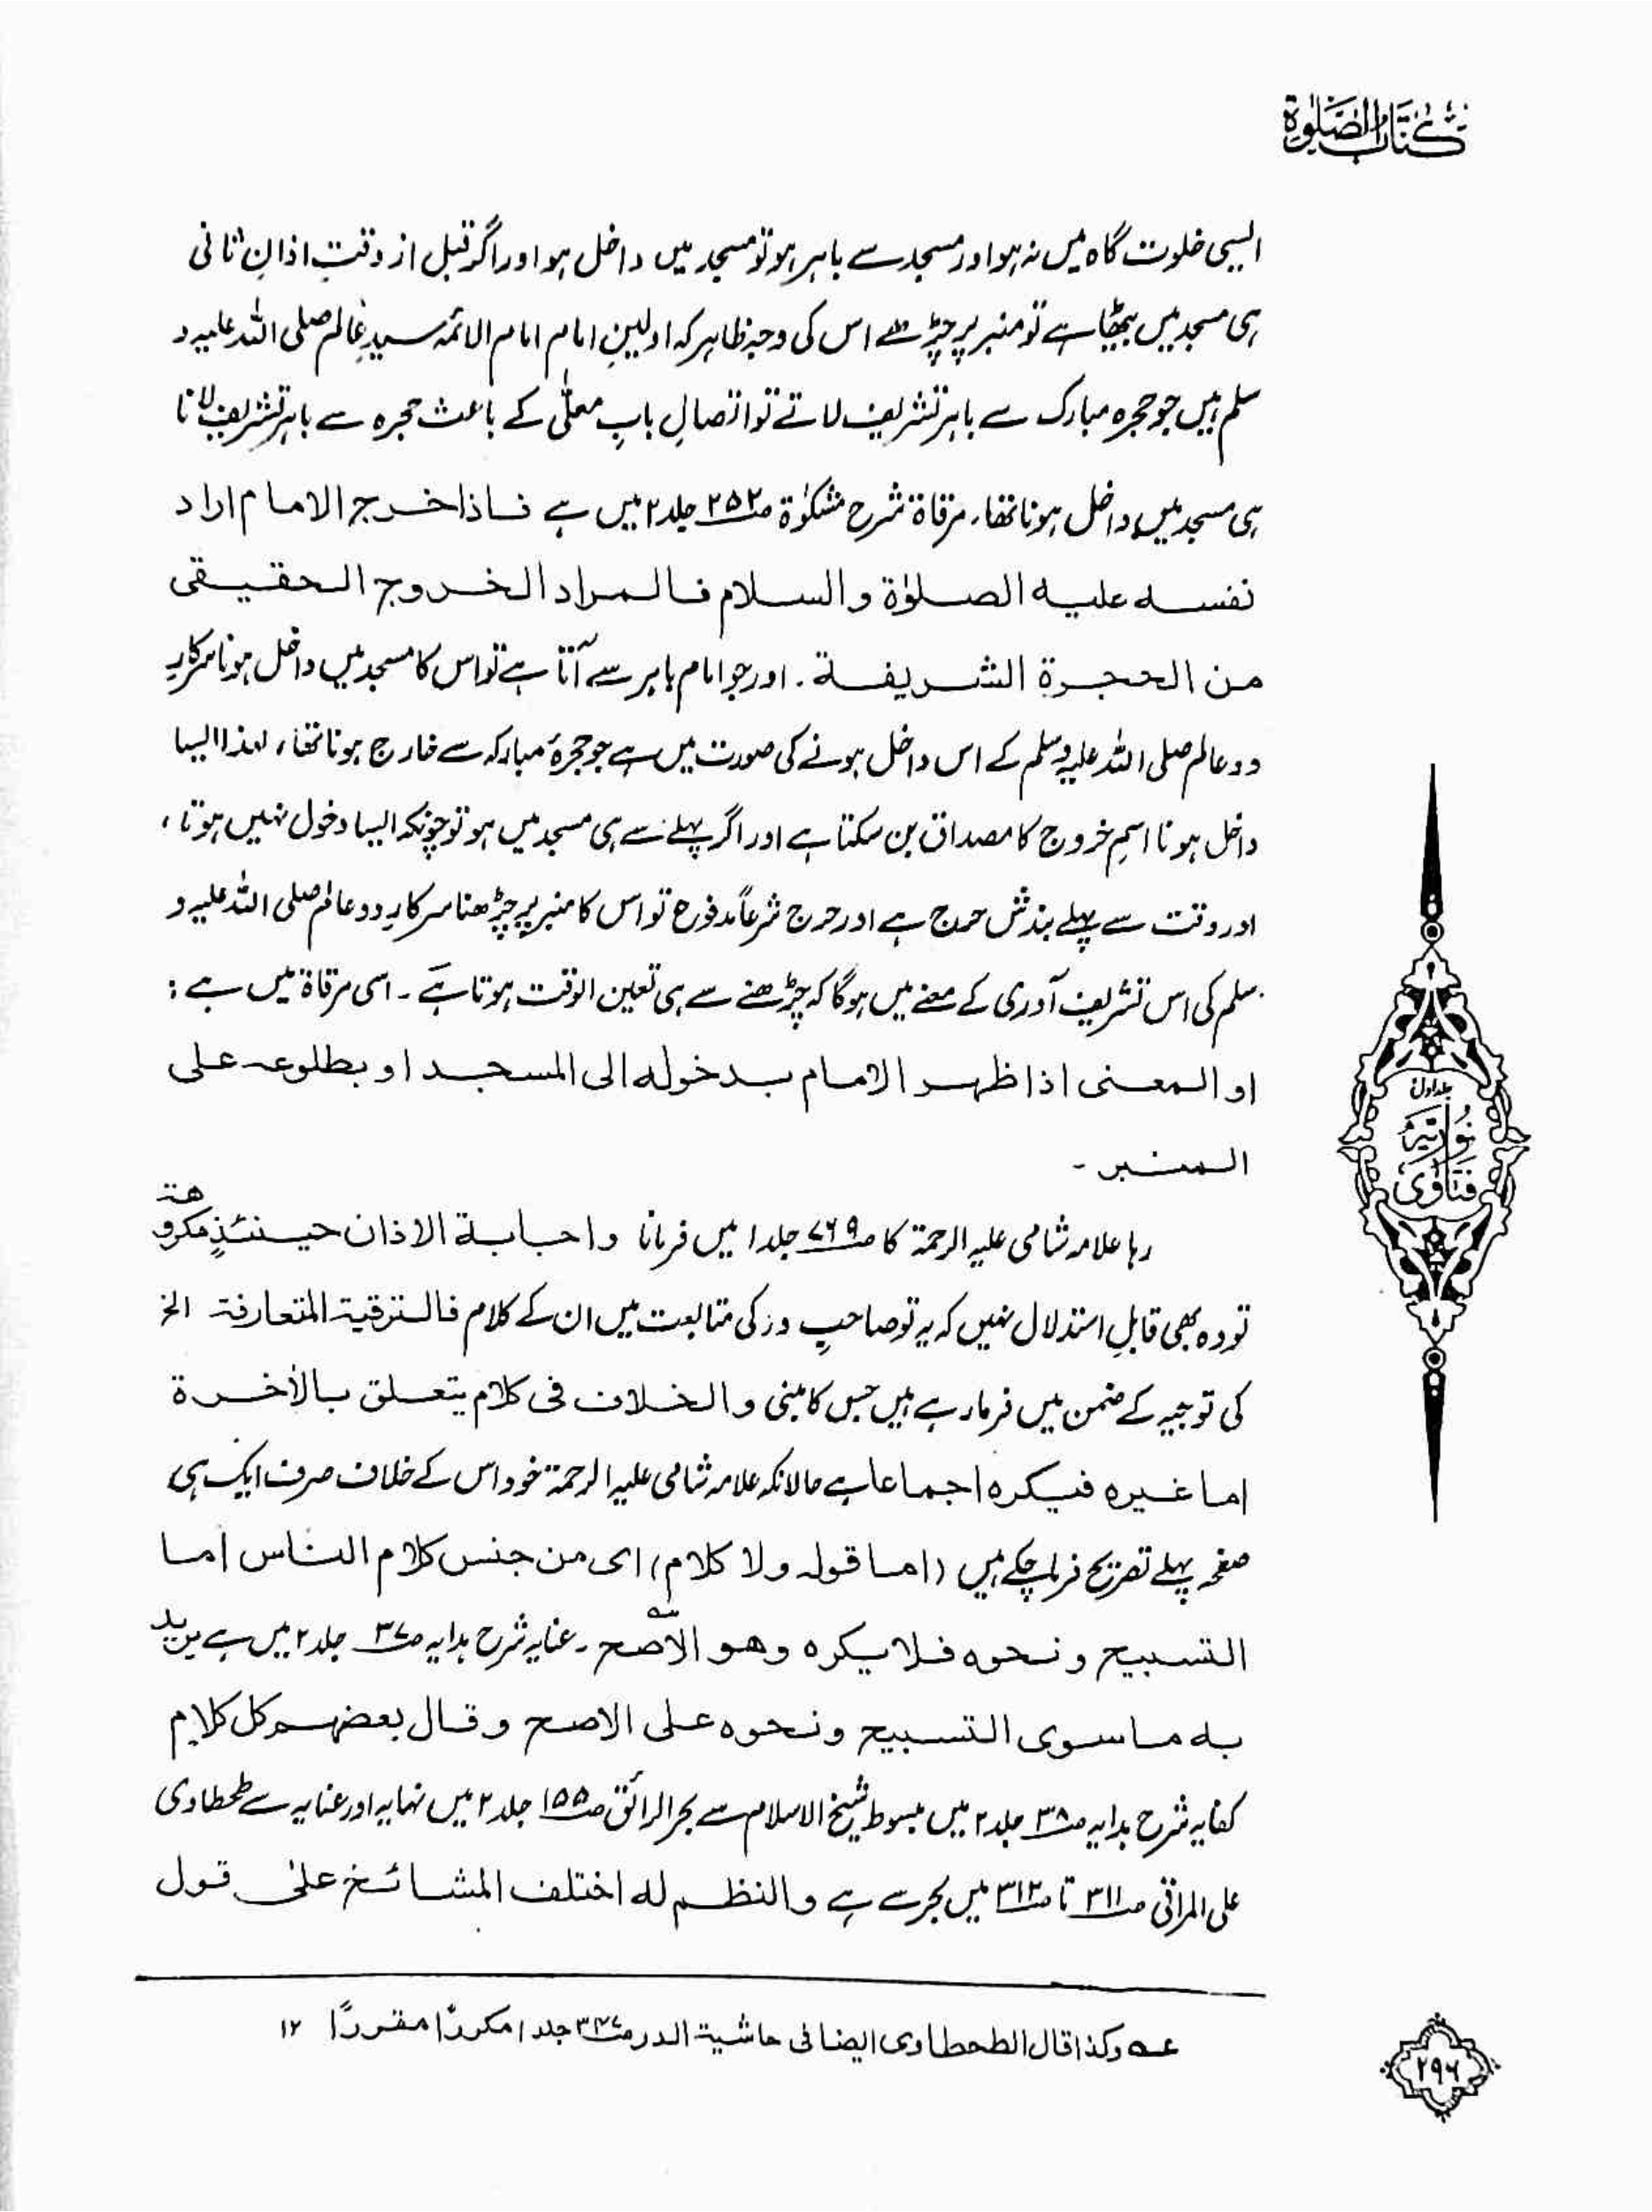 كتاب الصلوٰة
ایسی خلوت گاہ میں نہ ہو اور مسجد سے باہر ہو تو مسجد میں داخل ہو اور اگر قبل از وقتِ اذانِ ثانی
ہی مسجد میں بیٹھا ہے تو منبر پر چڑھے اس کی وجہ ظاہر کہ اولین امام امام الائمہ سیدِ عالم صلی اللہ علیہ و
سلم ہیں جو حجرہ مبارک سے باہر تشریف لاتے تو اتصالِ بابِ معلّٰی کے باعث حجرہ سے باہر تشریف لانا
ہی مسجد میں داخل ہونا تھا، مرقاۃ شرح مشکوٰۃ ص۲۵۲ جلد ۲ میں ہے فاذا خرج الامام اراد
نفسه عليه الصلوٰة والسلام فالمراد الخروج الحقيقى
من الحجرة الشريفة۔ اور جو امام باہر سے آتا ہے تو اس کا مسجد میں داخل ہونا سرکارِ
دو عالم صلی اللہ علیہ وسلم کے اس داخل ہونے کی صورت میں ہے جو حجرۂ مبارکہ سے خارج ہونا تھا، لہذا ایسا
داخل ہونا اسمِ خروج کا مصداق بن سکتا ہے اور اگر پہلے سے ہی مسجد میں ہو تو چونکہ ایسا دخول نہیں ہوتا،
اور وقت سے پہلے بندش حرج ہے اور حرج شرعاً مدفوع تو اس کا منبر پر چڑھنا سرکارِ دو عالم صلی اللہ علیہ و
سلم کی اس تشریف آوری کے معنے میں ہوگا کہ چڑھنے سے ہی تعین الوقت ہوتا ہے۔ اسی مرقاۃ میں ہے :
او المعنى اذا ظهر الامام بدخوله الى المسجد او بطلوعه على
المنبر۔
رہا علامہ شامی علیہ الرحمۃ کا ص۷۶۹ جلد ۱ میں فرمانا واجابة الاذان حينئذٍ مكروهة
تو وہ بھی قابلِ استدلال نہیں کہ یہ تو صاحبِ در کی متابعت میں ان کے کلام فالترقية المتعارفة الخ
کی توجیہ کے ضمن میں فرما رہے ہیں جس کا مبنی والخلاف فى كلام يتعلق بالأخرة
اما غيره فيكره اجماعا ہے حالانکہ علامہ شامی علیہ الرحمۃ خود اس کے خلاف صرف ایک ہی
صفحہ پہلے تصریح فرما چکے ہیں (اما قوله ولا كلام) اى من جنس كلام الناس اما
التسبيح ونحوه فلا يكره وهو الاصح عہ۔ عنایہ شرح ہدایہ ص۳۷ جلد ۲ میں ہے يريد
به ما سوى التسبيح ونحوه على الاصح وقال بعضهم كل كلام
کفایہ شرح ہدایہ ص۳۸ جلد ۲ میں مبسوط شیخ الاسلام سے بحر الرائق ص۱۵۵ جلد ۲ میں نہایہ اور عنایہ سے طحطاوی
علی المراقی ص۳۱۱ تا ص۳۱۲ میں بحر سے ہے والنظم له اختلف المشائخ علىٰ قول
عہ وكذا قال الطحطاوى ايضا فى حاشية الدر ص۳۴۷ جلد ۱ مكررًا مقررًا ۱۲
جلد اول
نوریّہ
فتاویٰ
۲۹۶